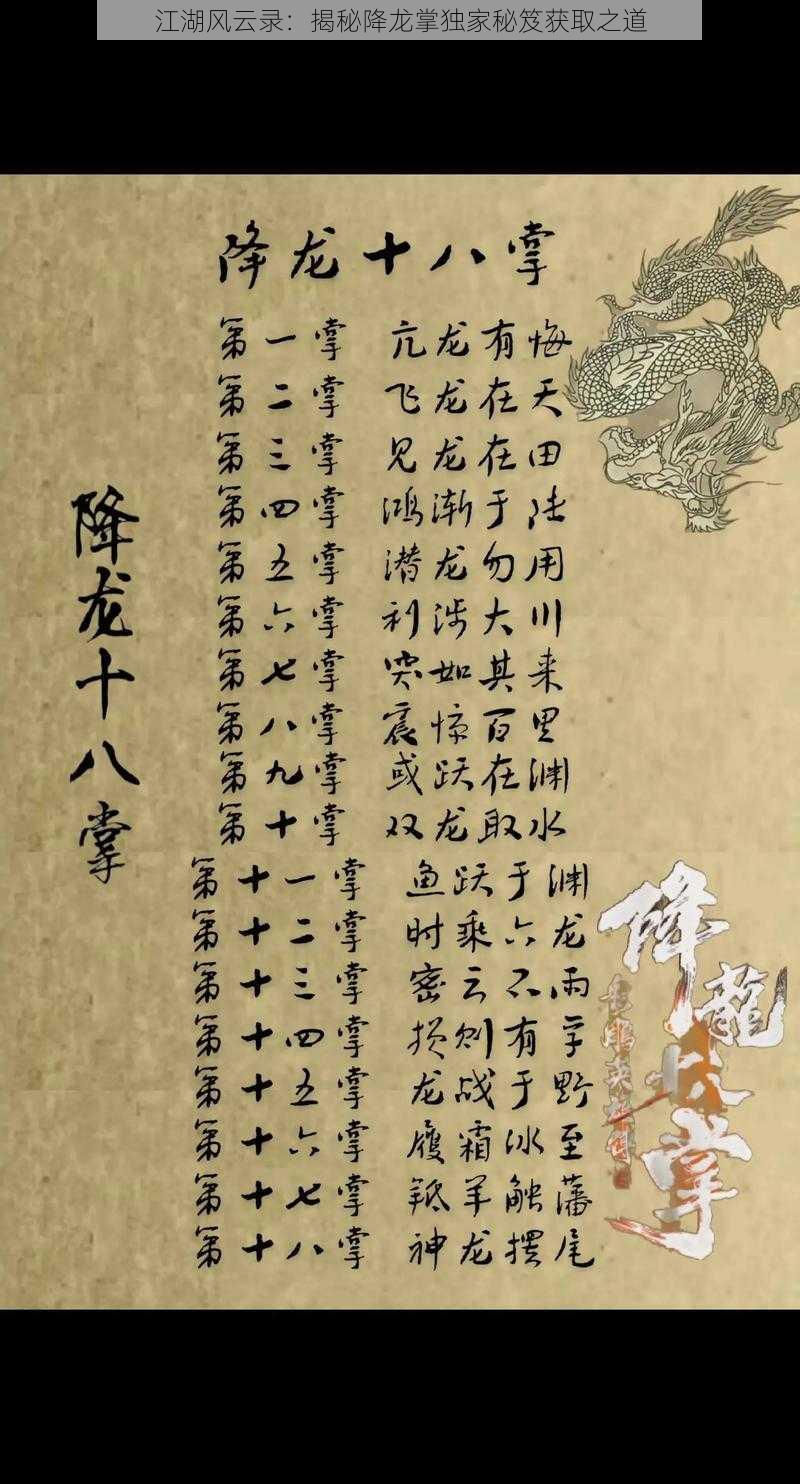 江湖风云录：揭秘降龙掌独家秘笈获取之道
降龙十八掌
第一掌 亢龙有悔
第二掌 飞龙在天
第三掌 见龙在田
第四掌 鸿渐于陆
第五掌 潜龙勿用
第六掌 利涉大川
第七掌 突如其来
第八掌 震惊百里
第九掌 或跃在渊
第十掌 双龙取水
第十一掌 鱼跃于渊
第十二掌 时乘六龙
第十三掌 密云不雨
第十四掌 损则有孚
第十五掌 龙战于野
第十六掌 履霜冰至
第十七掌 羝羊触藩
第十八掌 神龙摆尾
降龙十八掌
降龍
掌